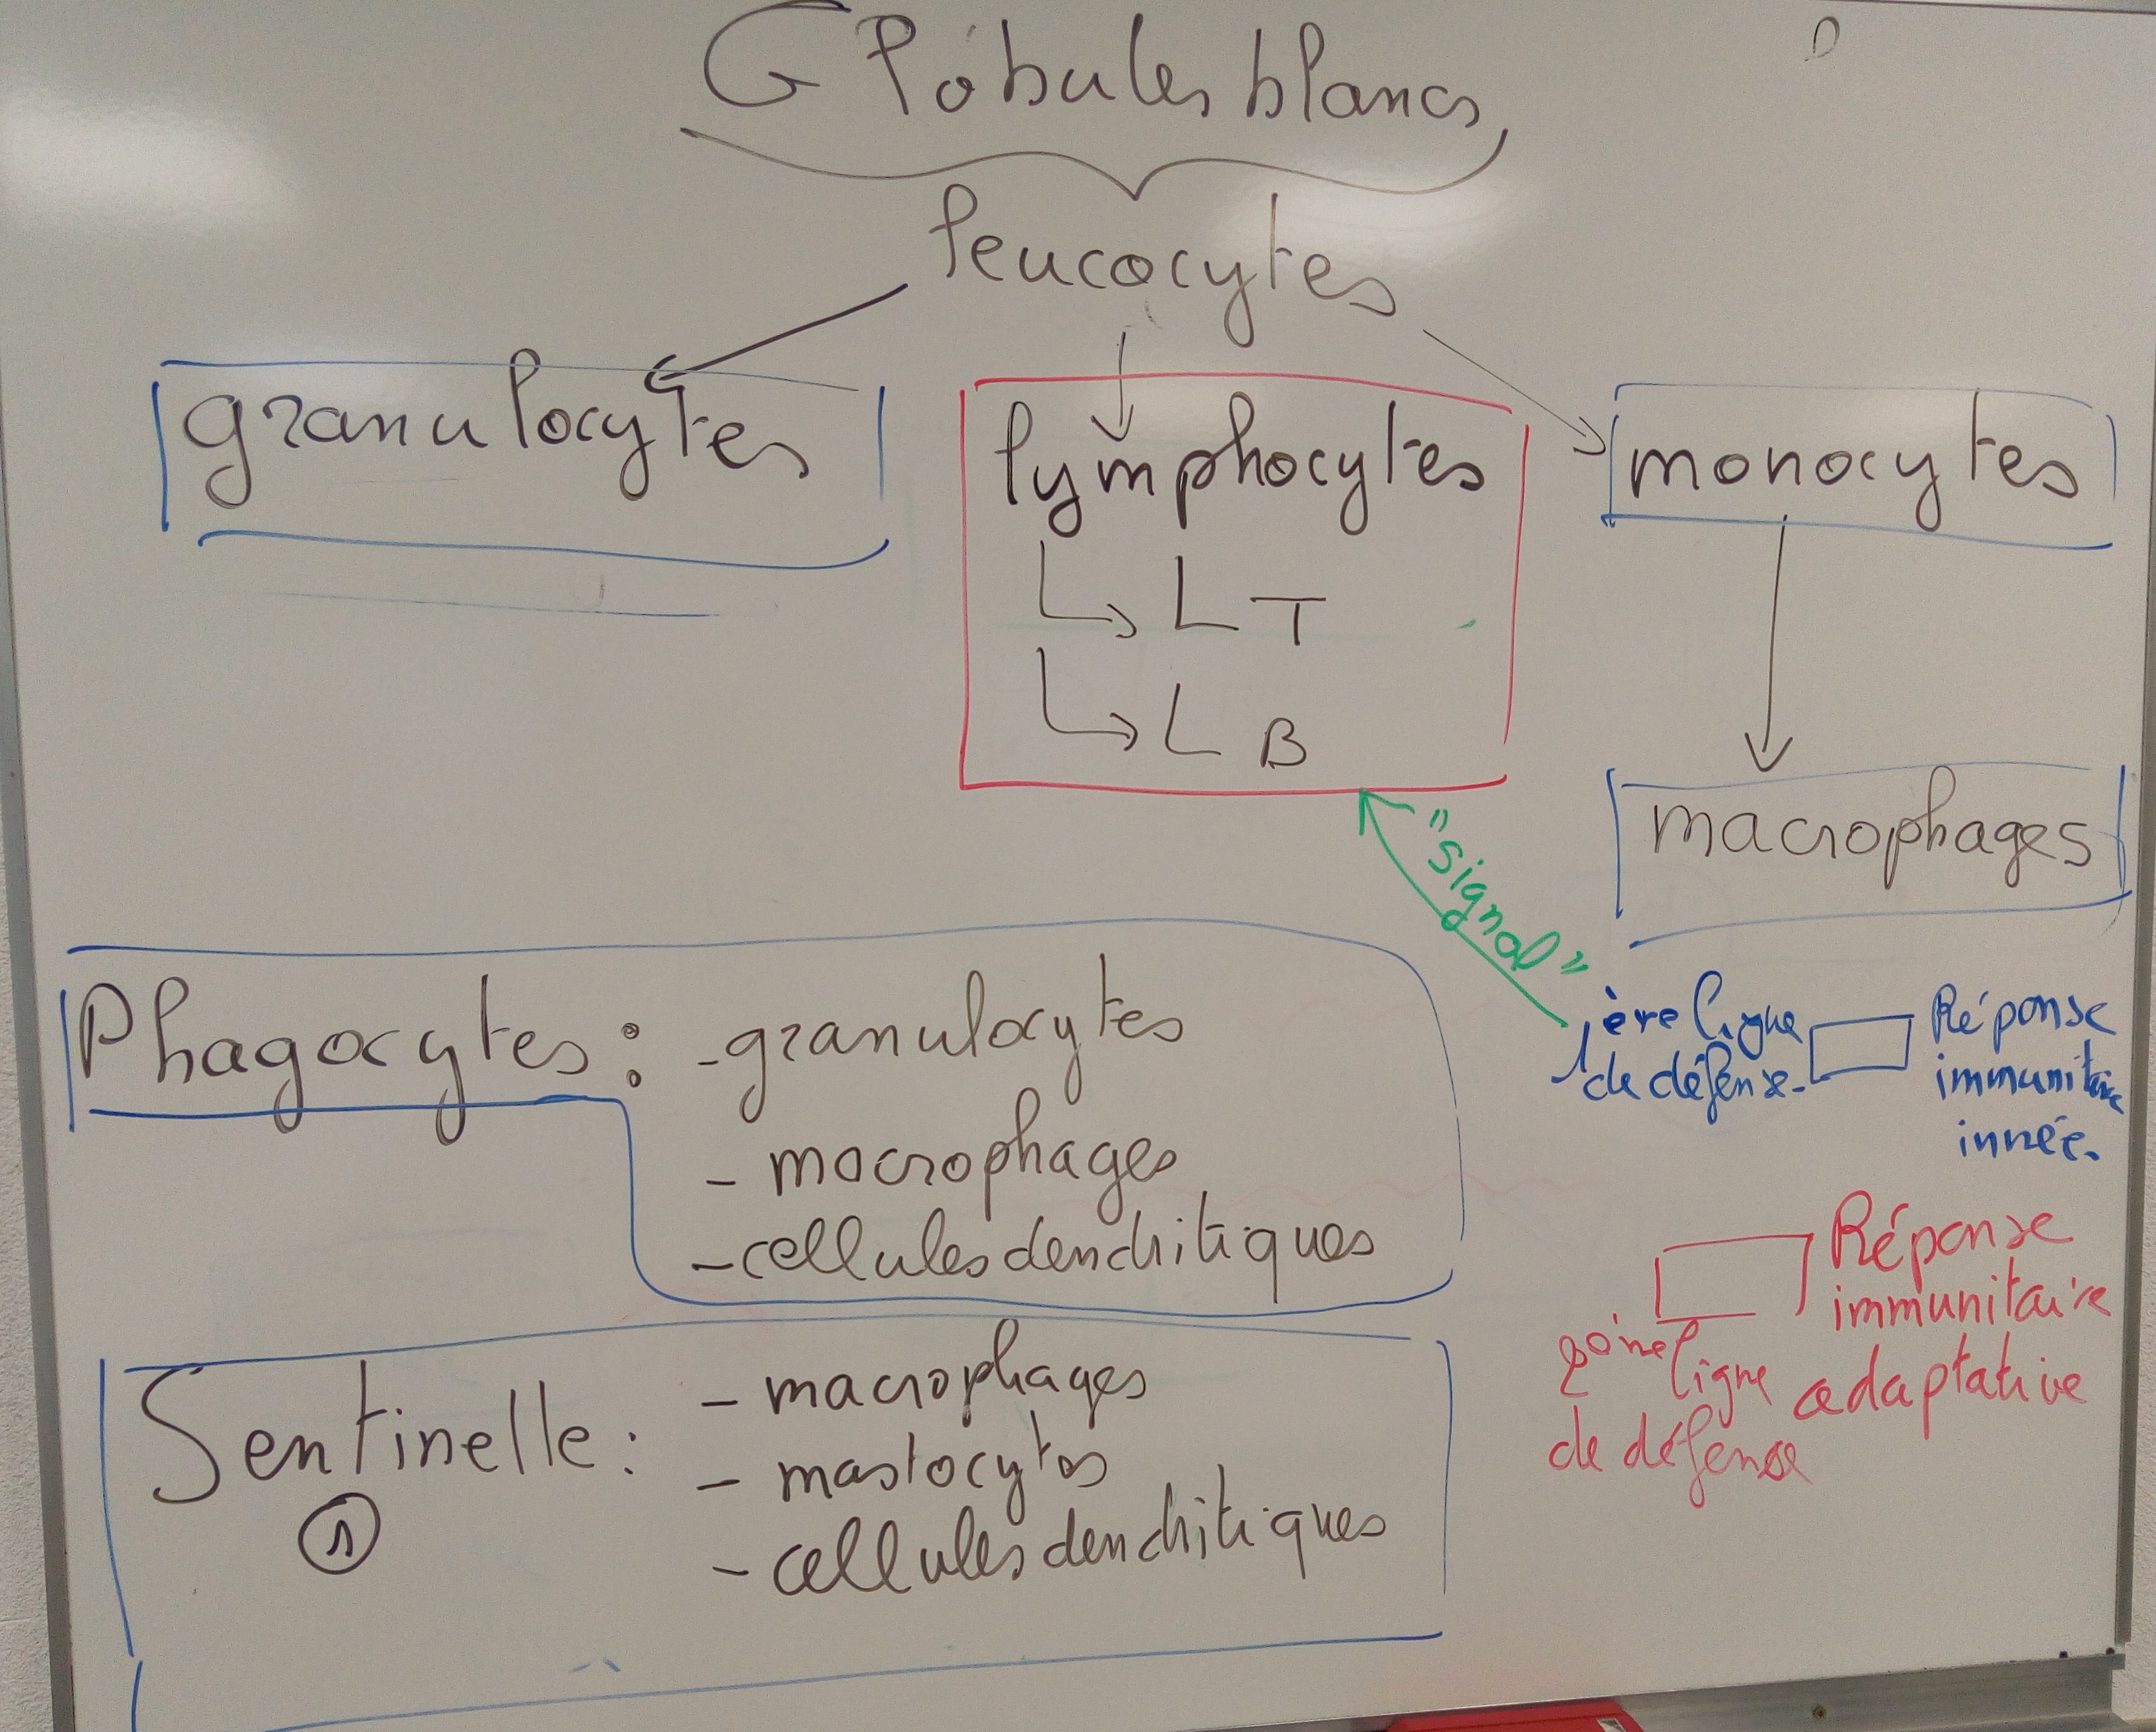 Globules blancs
leucocytes
granulocytes
lymphocytes
LT
LB
monocytes
macrophages
"signal"
Phagocytes : - granulocytes
- macrophages
- cellules dendritiques
1ère ligne
de défense.
Réponse
immunitaire
innée.
Sentinelle :
①
- macrophages
- mastocytes
- cellules dendritiques
Réponse
immunitaire
adaptative
2ème ligne
de défense